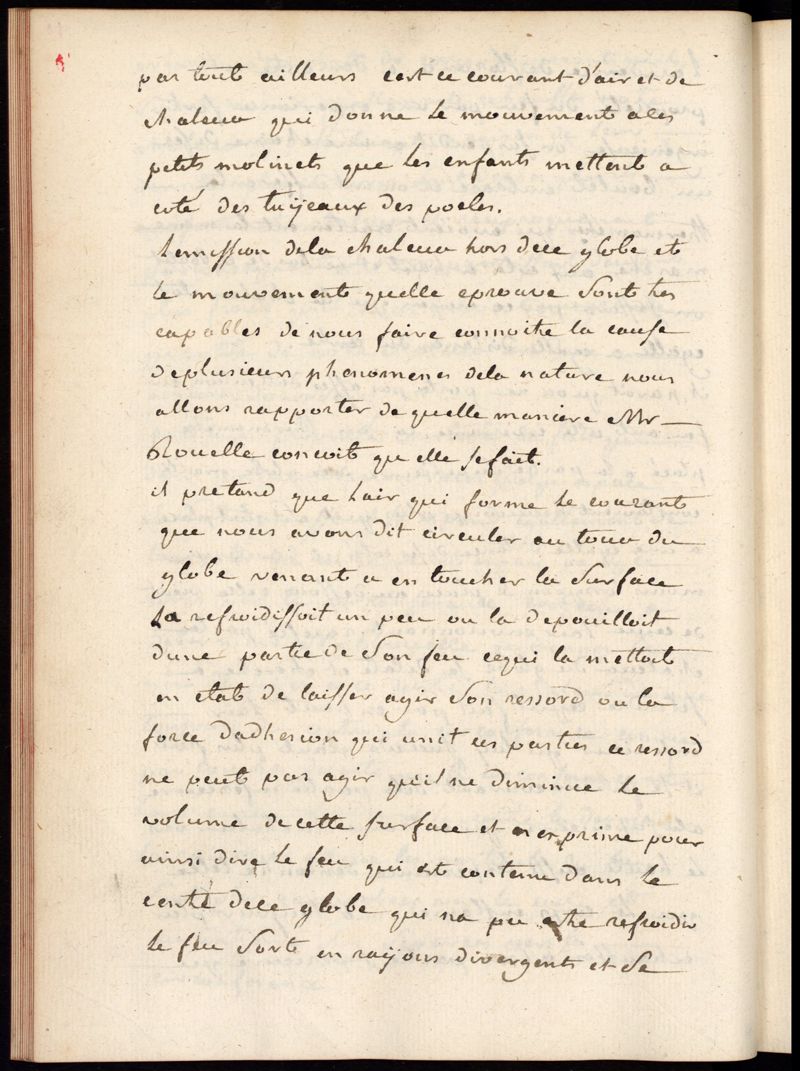 par tout ailleurs cest ce courant d'air et de
chaleur qui donne le mouvement a ces
petits molinets que les enfants mettent a
coté des tuÿeaux des poeles.
lemission dela chaleur hors dece globe et
le mouvement quelle eprouve sont tres
capables de nous faire connoitre la cause
deplusieurs phenomenes dela nature nous
allons rapporter de quelle maniere Mr
Rouelle concoit qu'elle se fait.
il pretend que lair qui forme le courant
que nous avons dit circuler au tour du
globe venant a en toucher la surface
la refroidissoit un peu ou la depouilloit
dune partie de son feu cequi la mettoit
en etat de laisser agir son ressord ou la
force dadhesion qui unit ces parties ce ressord
ne peut pas agir qu'il ne diminue le
volume decette surface et nexprime pour
ainsi dire le feu qui est contenu dans le
centre dece globe qui na pu etre refroidir
le feu sort en raÿons divergents et se